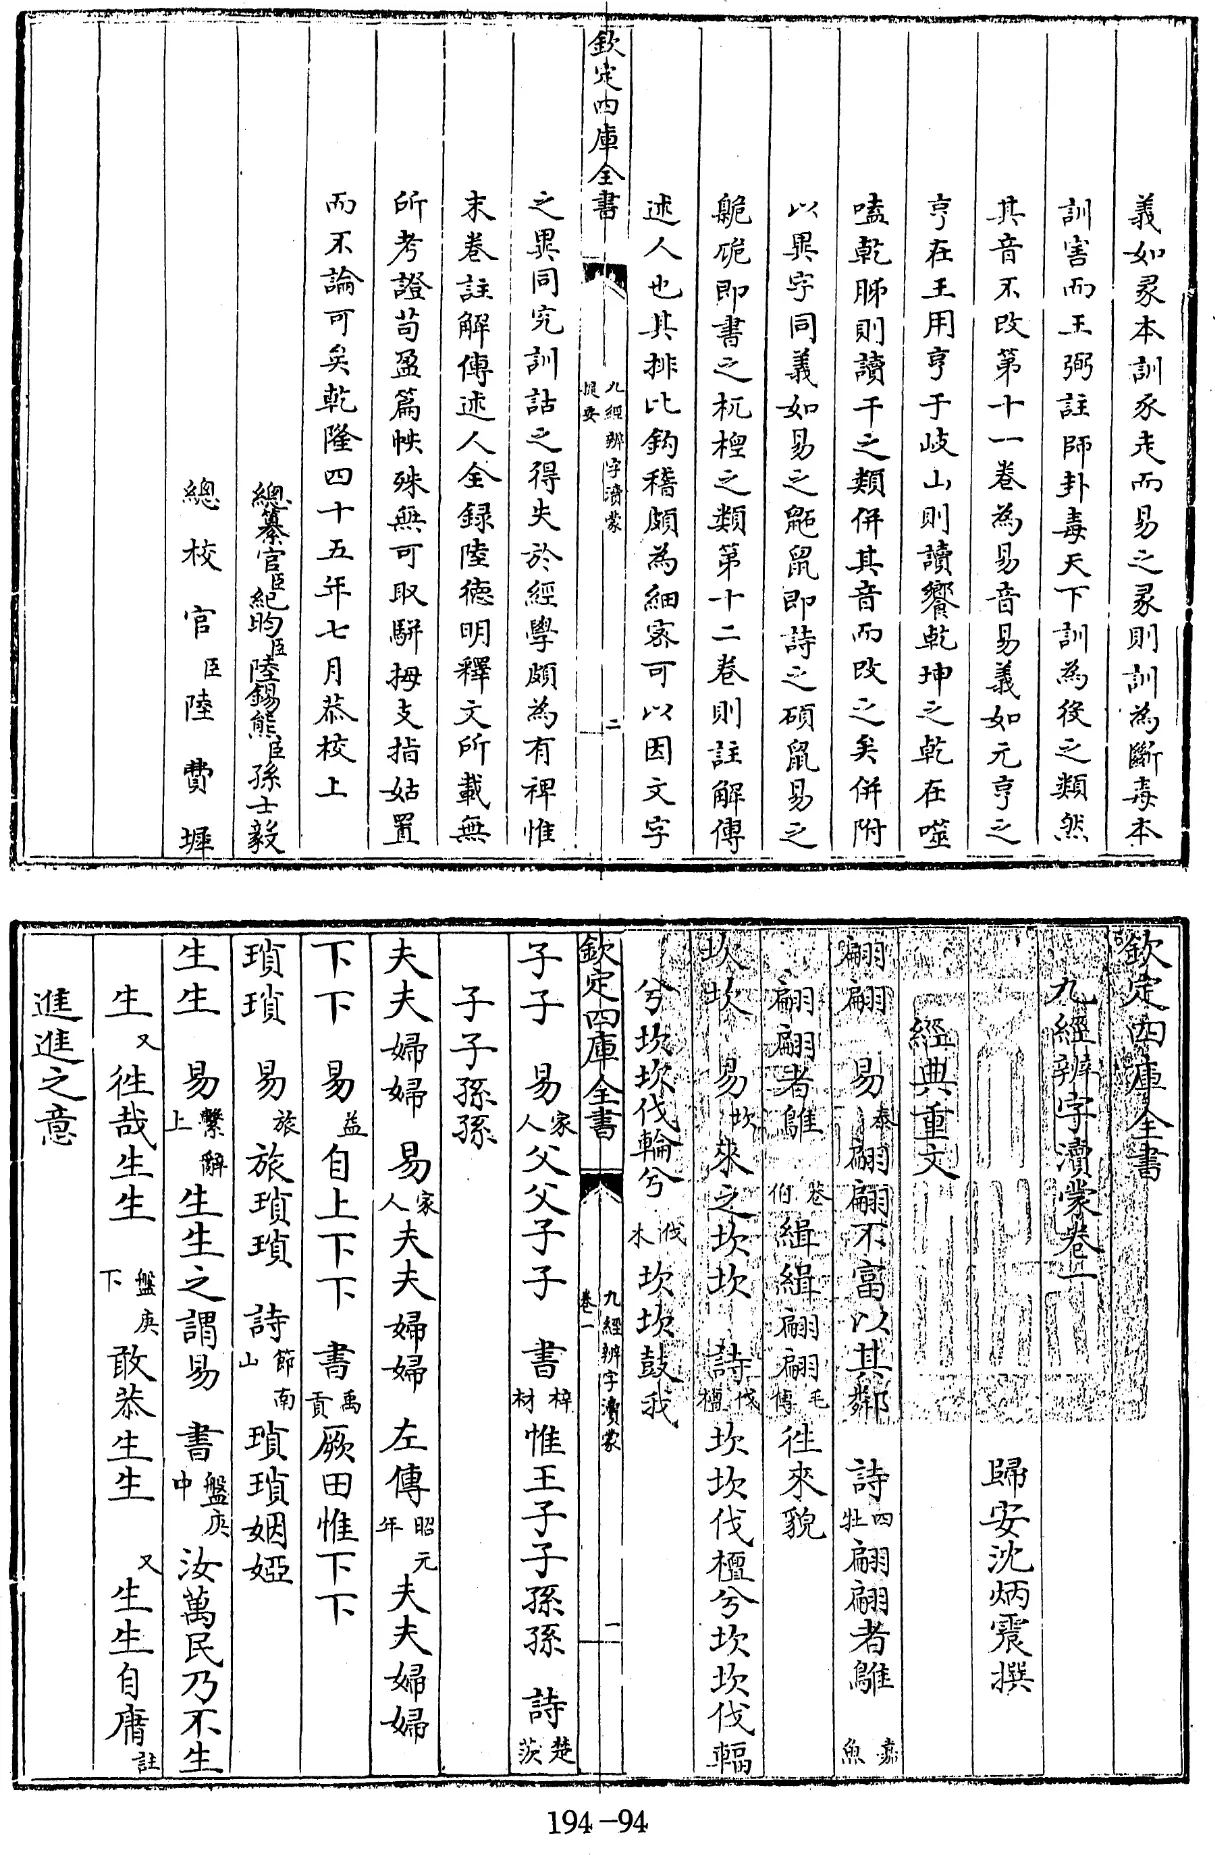 義如彖本訓豕走而易之彖則訓為斷毒本
訓害而王弼註師卦毒天下訓為役之類然
其音不改第十一卷為易音易義如元亨之
亨在王用亨于岐山則讀饗乾坤之乾在噬
嗑乾胏則讀干之類併其音而改之矣併附
以異字同義如易之鼫鼠即詩之碩鼠易之
臲卼即書之杌棿之類第十二卷則註解傳
述人也其排比鈎稽頗為細密可以因文字
欽定四庫全書
九經辨字瀆蒙
提要
二
之異同究訓詁之得失於經學頗為有裨惟
末卷註解傳述人全録陸德明釋文所載無
所考證苟盈篇帙殊無可取駢拇支指姑置
而不論可矣乾隆四十五年七月恭校上
總纂官臣紀昀臣陸錫熊臣孫士毅
總校官臣陸費墀
欽定四庫全書
九經辨字瀆蒙卷一
歸安沈炳震撰
經典重文
翩翩 易泰翩翩不富以其鄰 詩四牡翩翩者鵻 嘉魚
翩翩者鵻 巷伯緝緝翩翩毛傳往來貌
坎坎 易坎來之坎坎 詩伐檀坎坎伐檀兮坎坎伐輻
兮坎坎伐輪兮 伐木坎坎鼓我
欽定四庫全書
九經辨字瀆蒙
卷一
一
子子 易家人父父子子 書梓材惟王子子孫孫 詩楚茨
子子孫孫
夫夫婦婦 易家人夫夫婦婦 左傳昭元年夫夫婦婦
下下 易益自上下下 書禹貢厥田惟下下
瑣瑣 易旅旅瑣瑣 詩節南山瑣瑣姻婭
生生 易繫辭上生生之謂易 書盤庚中汝萬民乃不生
生 又往哉生生 盤庚下敢恭生生 又生生自庸註
進進之意
194-94